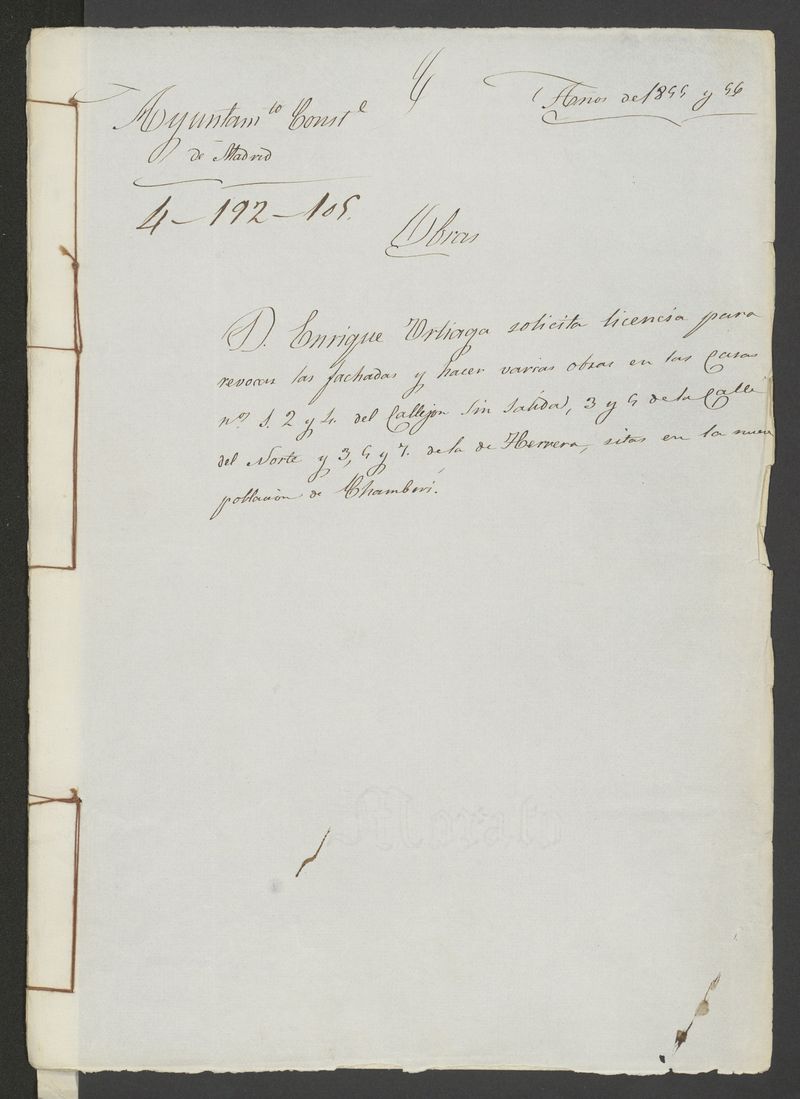 Ayuntam.to Const.l
de Madrid
Años de 1855 y 56
4-192-105.
Obras
D. Enrique Urtiaga solicita licencia para
revocar las fachadas y hacer varias obras en las Casas
n.os 1. 2 y 4. del Callejon sin salida, 3 y 5 de la Calle
del Norte y 3, 5 y 7. de la de Herrera, sitas en la nueva
poblacion de Chamberi.
Morato